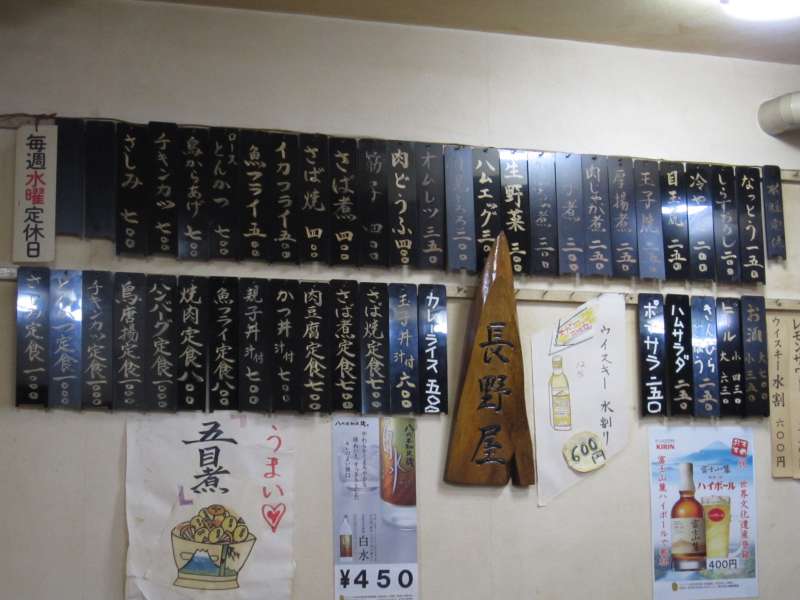 毎週水曜定休日
さしみ 七〇〇
チキンカツ 七〇〇
鳥からあげ 七〇〇
ロースとんかつ 七〇〇
魚フライ 五〇〇
イカフライ 五〇〇
さば焼 四〇〇
さば煮 四〇〇
筋子 四〇〇
肉どうふ 四〇〇
オムレツ 三五〇
ハムエッグ 三〇〇
生野菜 三〇〇
肉じゃが煮 二五〇
厚揚煮 二五〇
玉子焼 二五〇
目玉焼 二五〇
冷やっこ 二〇〇
しらすおろし 二〇〇
なっとう 一五〇
さしみ定食
とんかつ定食 七〇〇
チキンカツ定食 七〇〇
鳥唐揚定食 七〇〇
ハンバーグ定食 七〇〇
焼肉定食 八〇〇
魚フライ定食 八〇〇
親子丼 汁付 七〇〇
かつ丼 汁付 七〇〇
肉豆腐定食 七〇〇
さば煮定食 七〇〇
さば焼定食 七〇〇
玉子丼 汁付 六〇〇
カレーライス 五〇〇
長野屋
ウイスキー 水割り
600円
ポテサラ 二五〇
ハムサラダ 二五〇
きんぴらごぼう 二五〇
ビール 大 六三〇 小 四三〇
お酒 大 七〇〇 小 三五〇
ウイスキー水割 六〇〇円
うまい
五目煮
白水
¥450
おすすめ
富士山麓
ハイボール
祝 世界文化遺産登録
富士山麓ハイボールで乾杯
400円